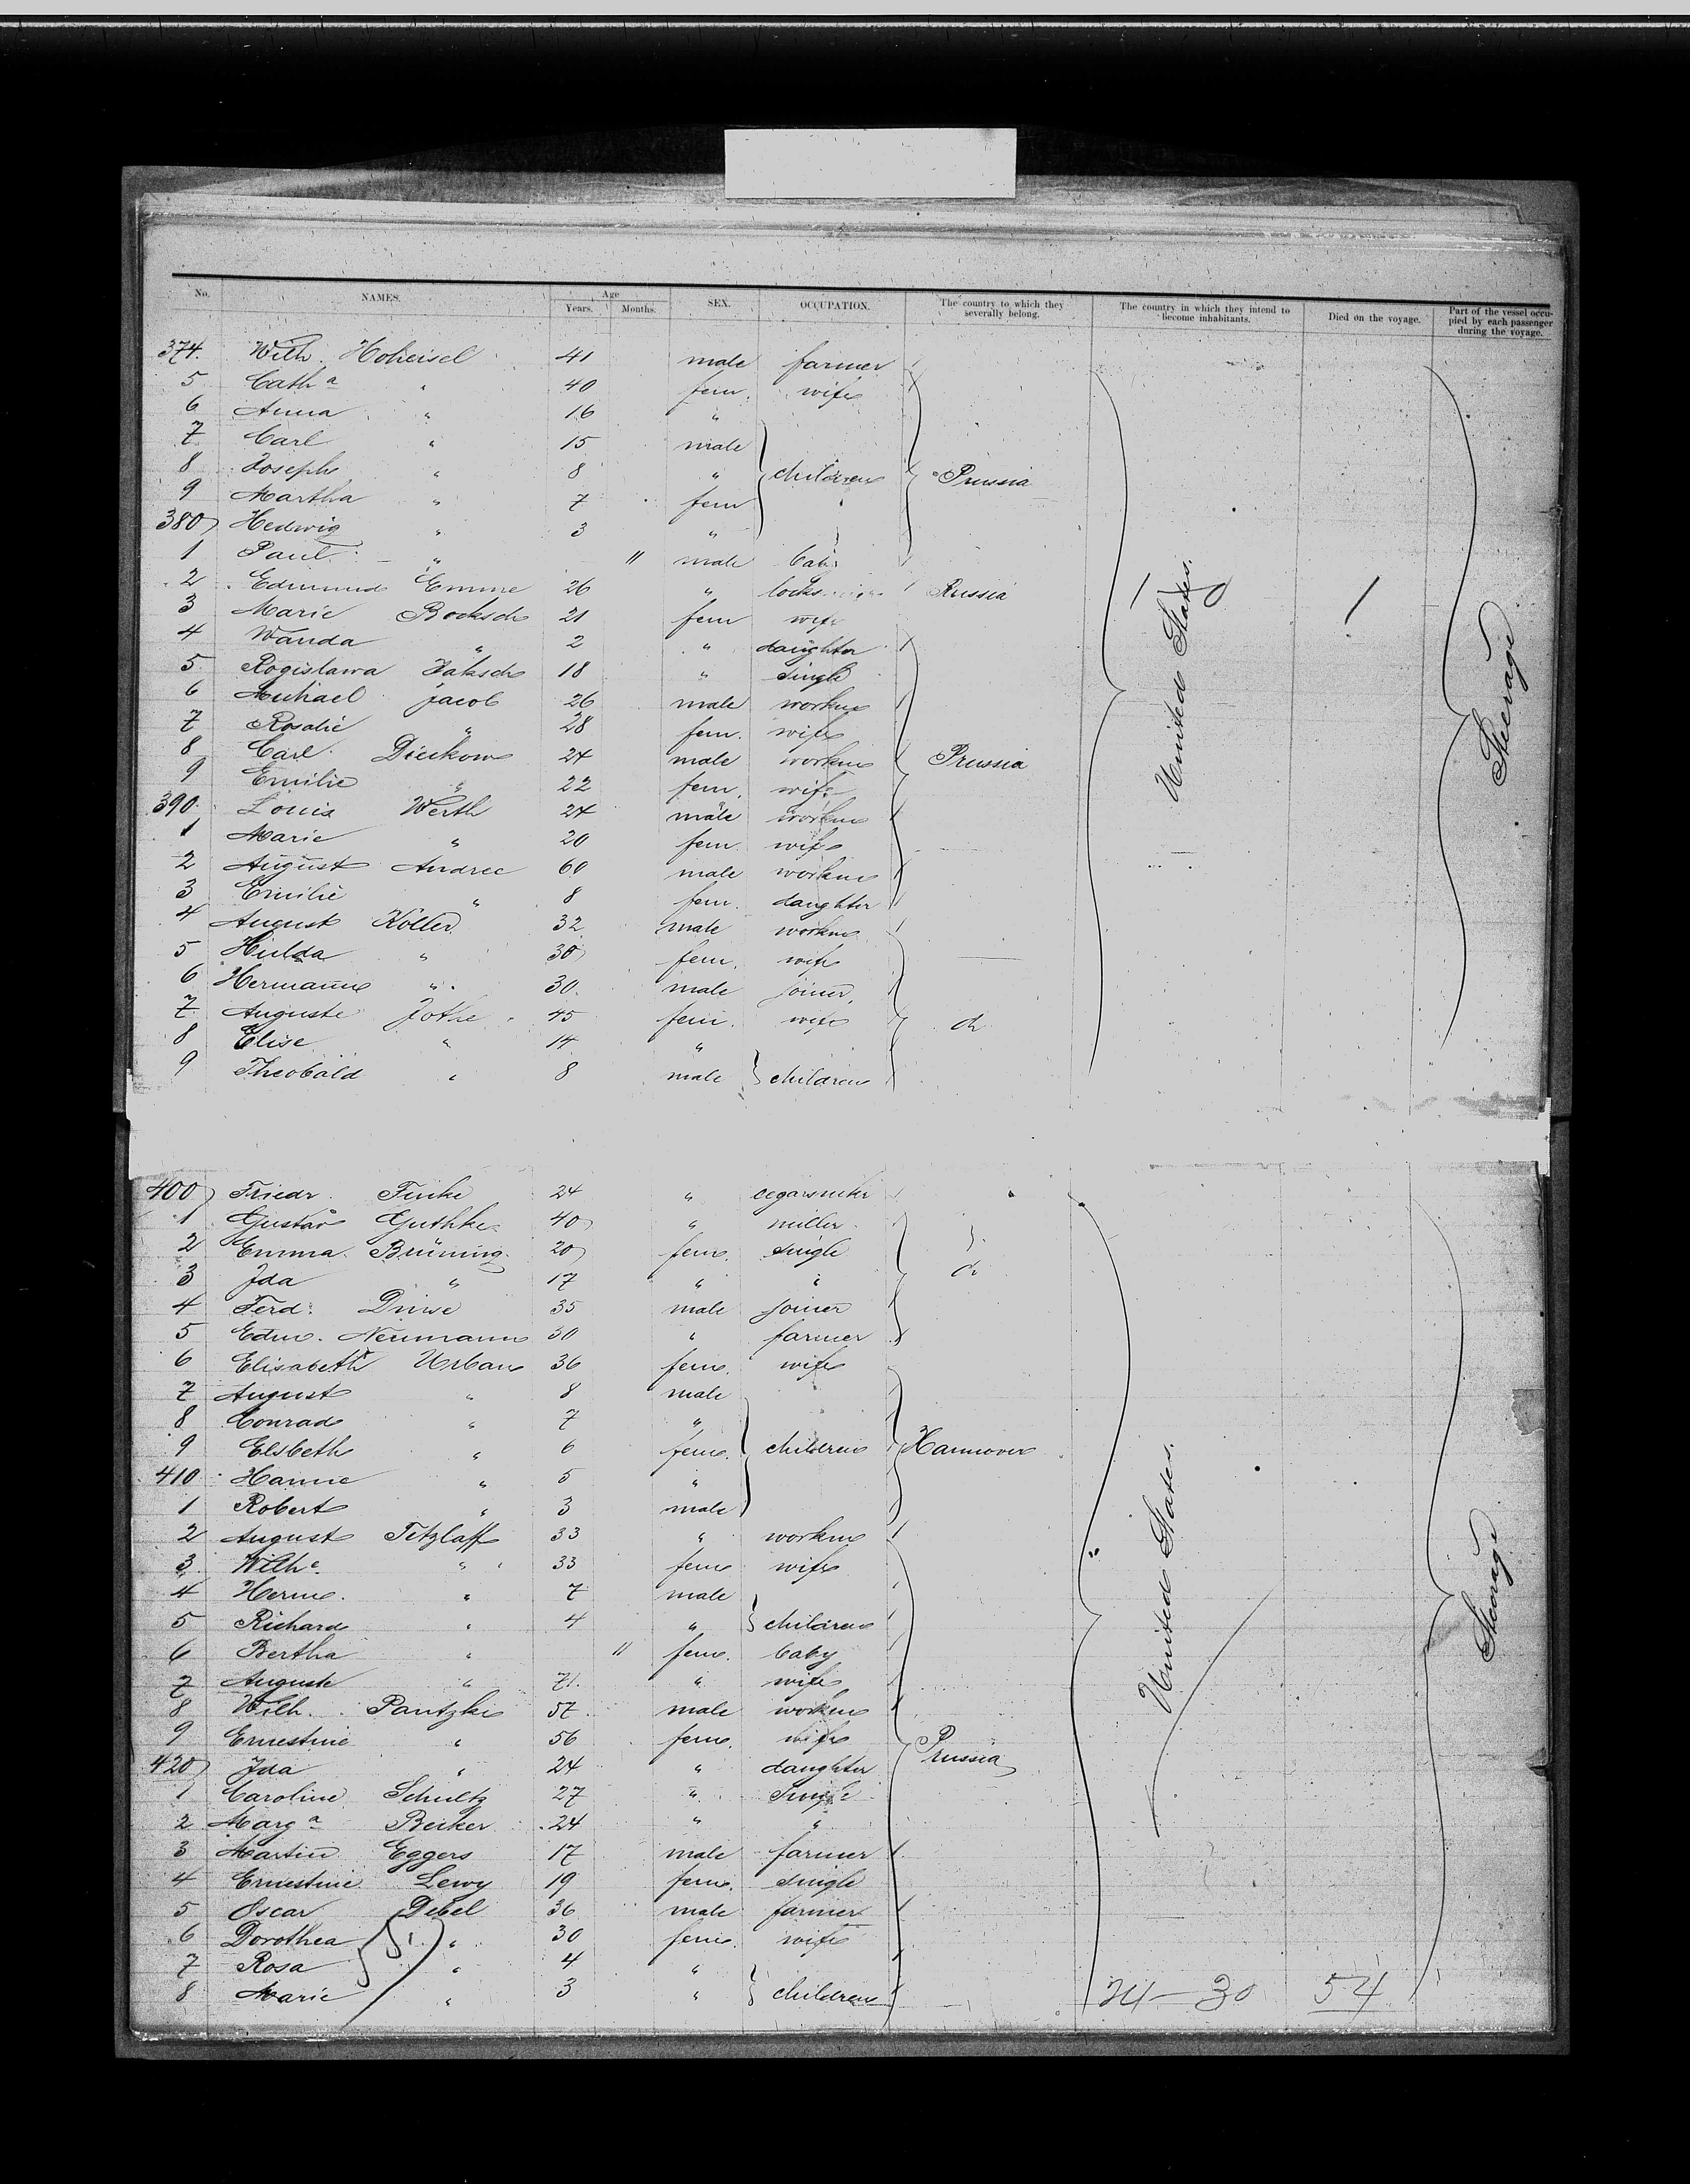 No. NAMES. Age Years. Months. SEX. OCCUPATION. The country to which they severally belong. The country in which they intend to become inhabitants. Died on the voyage. Part of the vessel occupied by each passenger during the voyage.
374. Wilh. Hoheisel 41 male farmer
5 Catha " 40 fem. wife
6 Anna " 16 "
7 Carl " 15 male
8 Joseph " 8 " children Prussia
9 Martha " 7 fem
380 Hedwig " 3 "
1 Paul " 11 male baby
2 Edmund Emme 26 " Russia
3 Marie Bocksch 21 fem wife
4 Wanda " 2 " daughter
5 Rogislawa Jaksch 18 " single
6 Michael Jacob 26 male workm
7 Rosalie " 28 fem. wife
8 Carl Dieckow 24 male workm Prussia
9 Emilie " 22 fem. wife
390. Louis Werth 24 male workm
1 Marie " 20 fem. wife
2 August Andree 60 male workm
3 Emilie " 8 fem. daughter
4 August Köller 32 male workm
5 Hulda " 30 fem. wife
6 Hermann " 30. male joiner,
7 Auguste Jothe 45 fem. wife do
8 Elise " 14 "
9 Theobald " 8 male children
United States.
Steerage
400 Friedr. Finke 24 " cegarsmkr
1 Gustav Guthke 40 " miller
2 Emma Brüning 20 fem. single
3 Ida " 17 " " do
4 Ferd. 35 male joiner
5 Edm. Neumann 30 " farmer
6 Elisabeth Urban 36 fem. wife
7 August " 8 male
8 Conrad " 7 "
9 Elsbeth " 6 fem. children Hannover
410 Hanne " 5 "
1 Robert " 3 male
2 August Tetzlaff 33 " workm
3 Wilhe. " 33 fem wife
4 Herm. " 7 male
5 Richard " 4 " children
6 Bertha " 11 fem. baby
7 Auguste " 71. " wife
8 Wilh. Pantzke 57 male workm
9 Ernestine " 56 fem. wife Prussia
420 Ida " 24 " daughter
1 Caroline Schultz 27 " single
2 Marga Becker 24 " "
3 Martin Eggers 17 male farmer
4 Ernestine Lewy 19 fem. single
5 Oscar Debel 36 male farmer
6 Dorothea " 30 fem. wife
7 Rosa " 4 "
8 Marie " 3 " children
United States.
Steerage
24 — 30 54